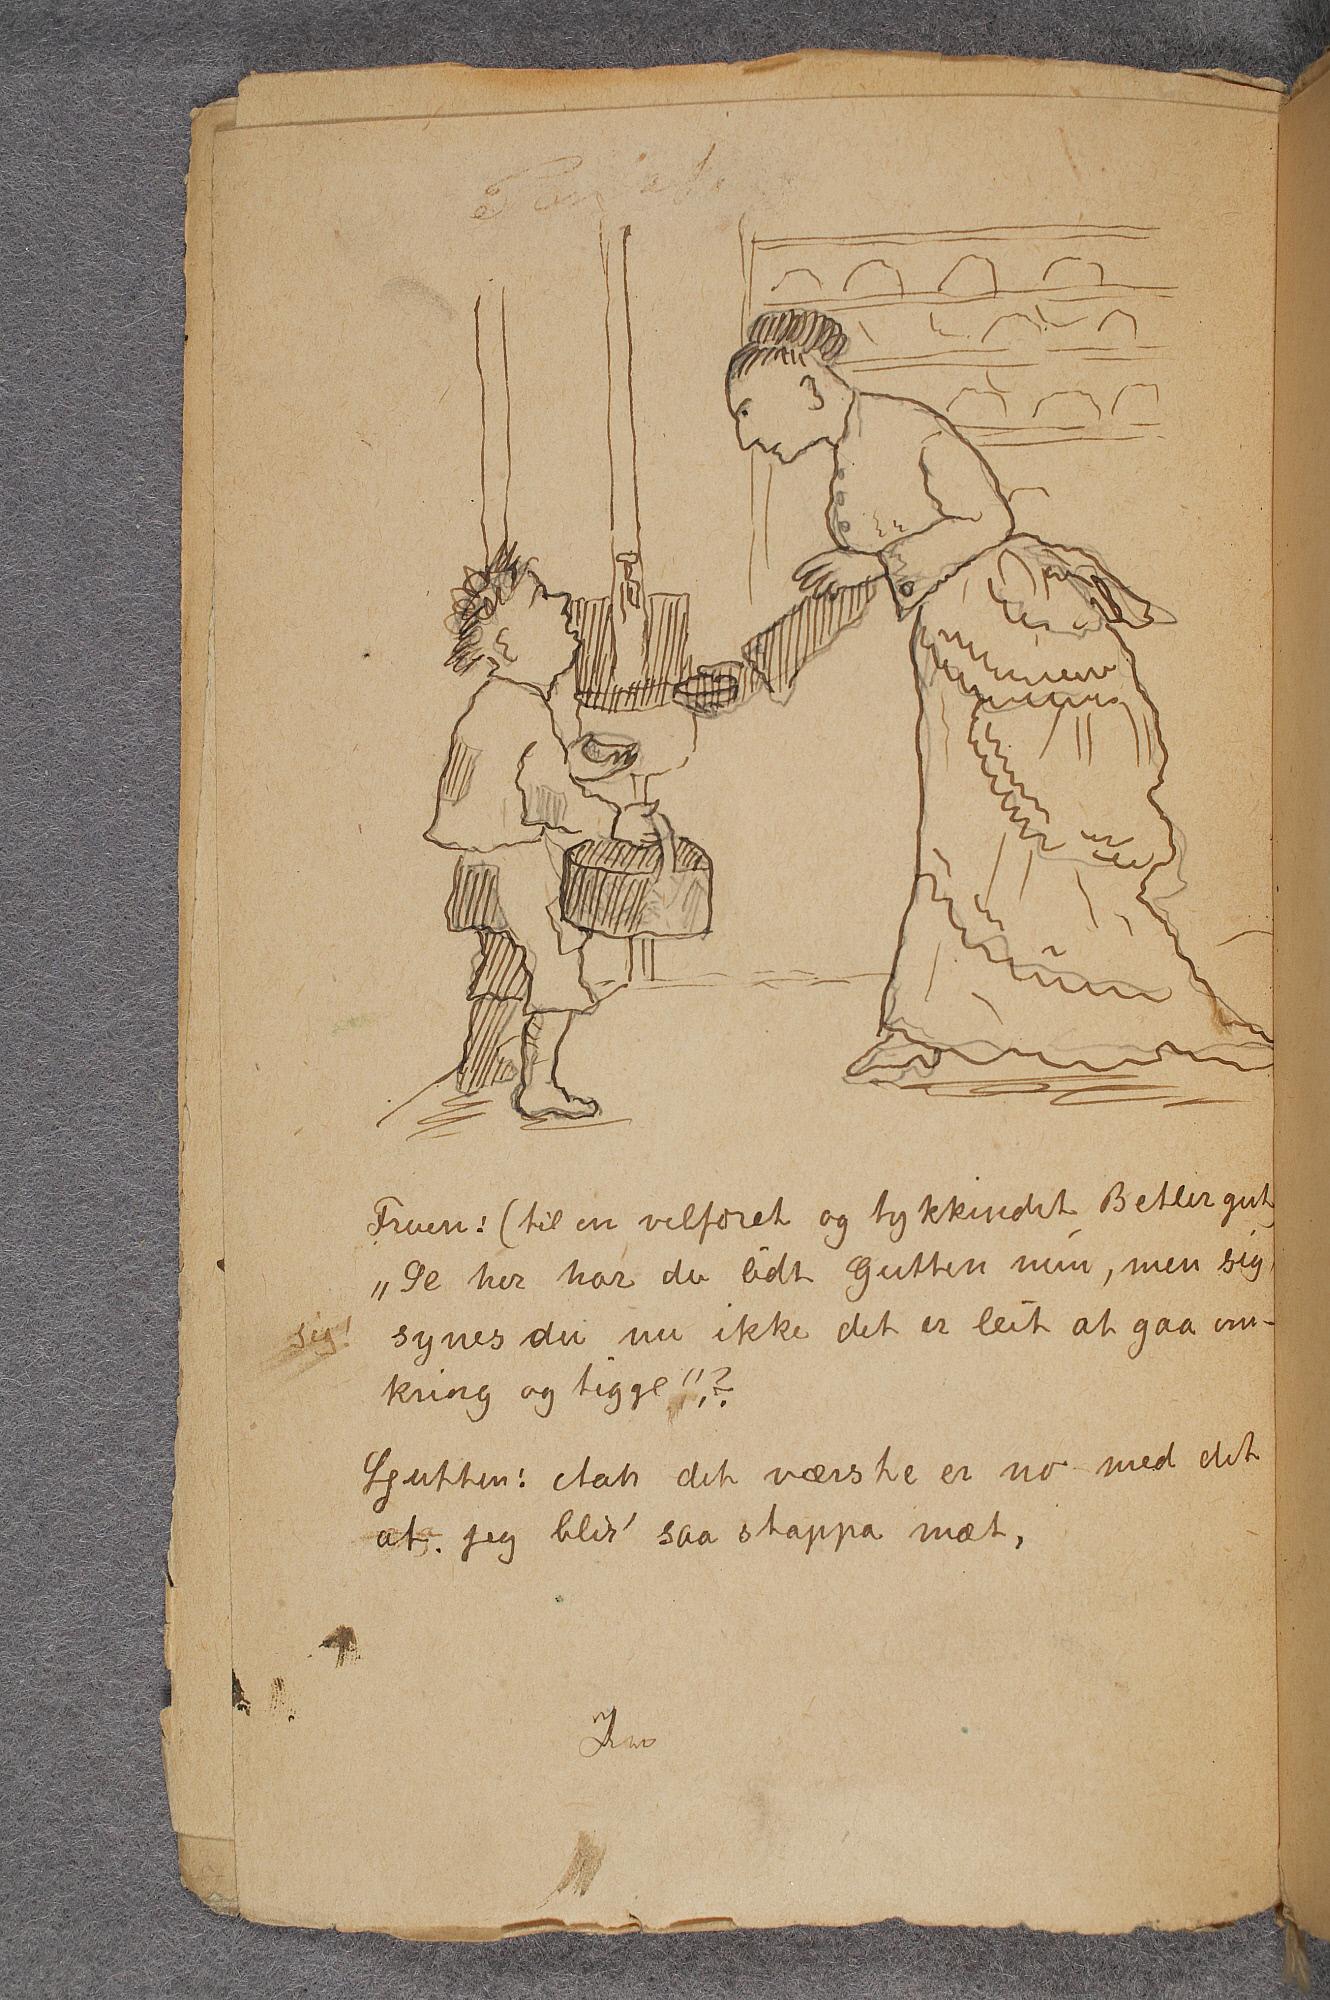 Fruen: (til en velføret og tykkindet Betlergut
„Se her har du lidt Gutten min, men sig
sig! synes du nu ikke det er leit at gaa om-
kring og tigge"?
Gutten: Aah det værste er no med det
at jeg blir' saa stappa mæt,